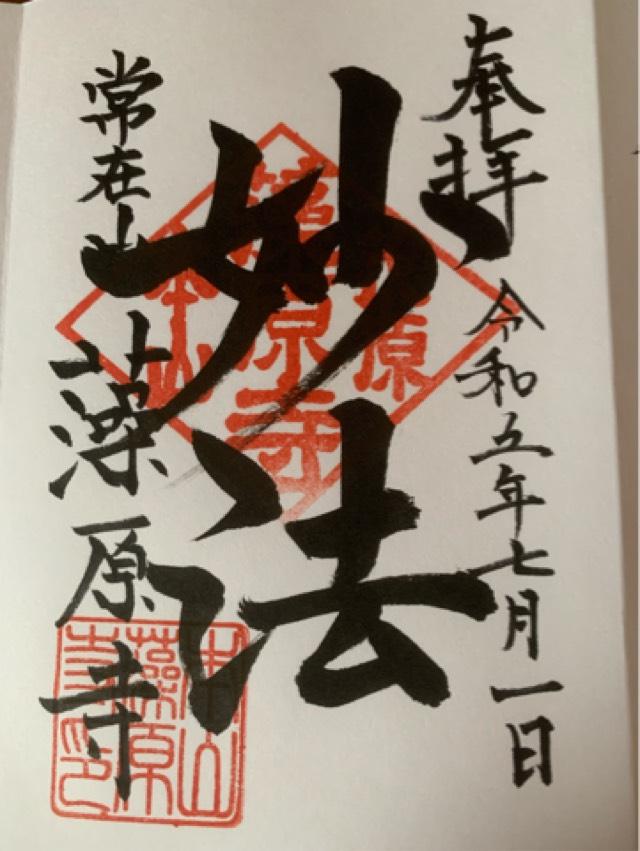 奉拝 令和五年七月一日
妙法
常在山 藻原寺
茂原
藻原寺
本山
本山
藻原
寺印